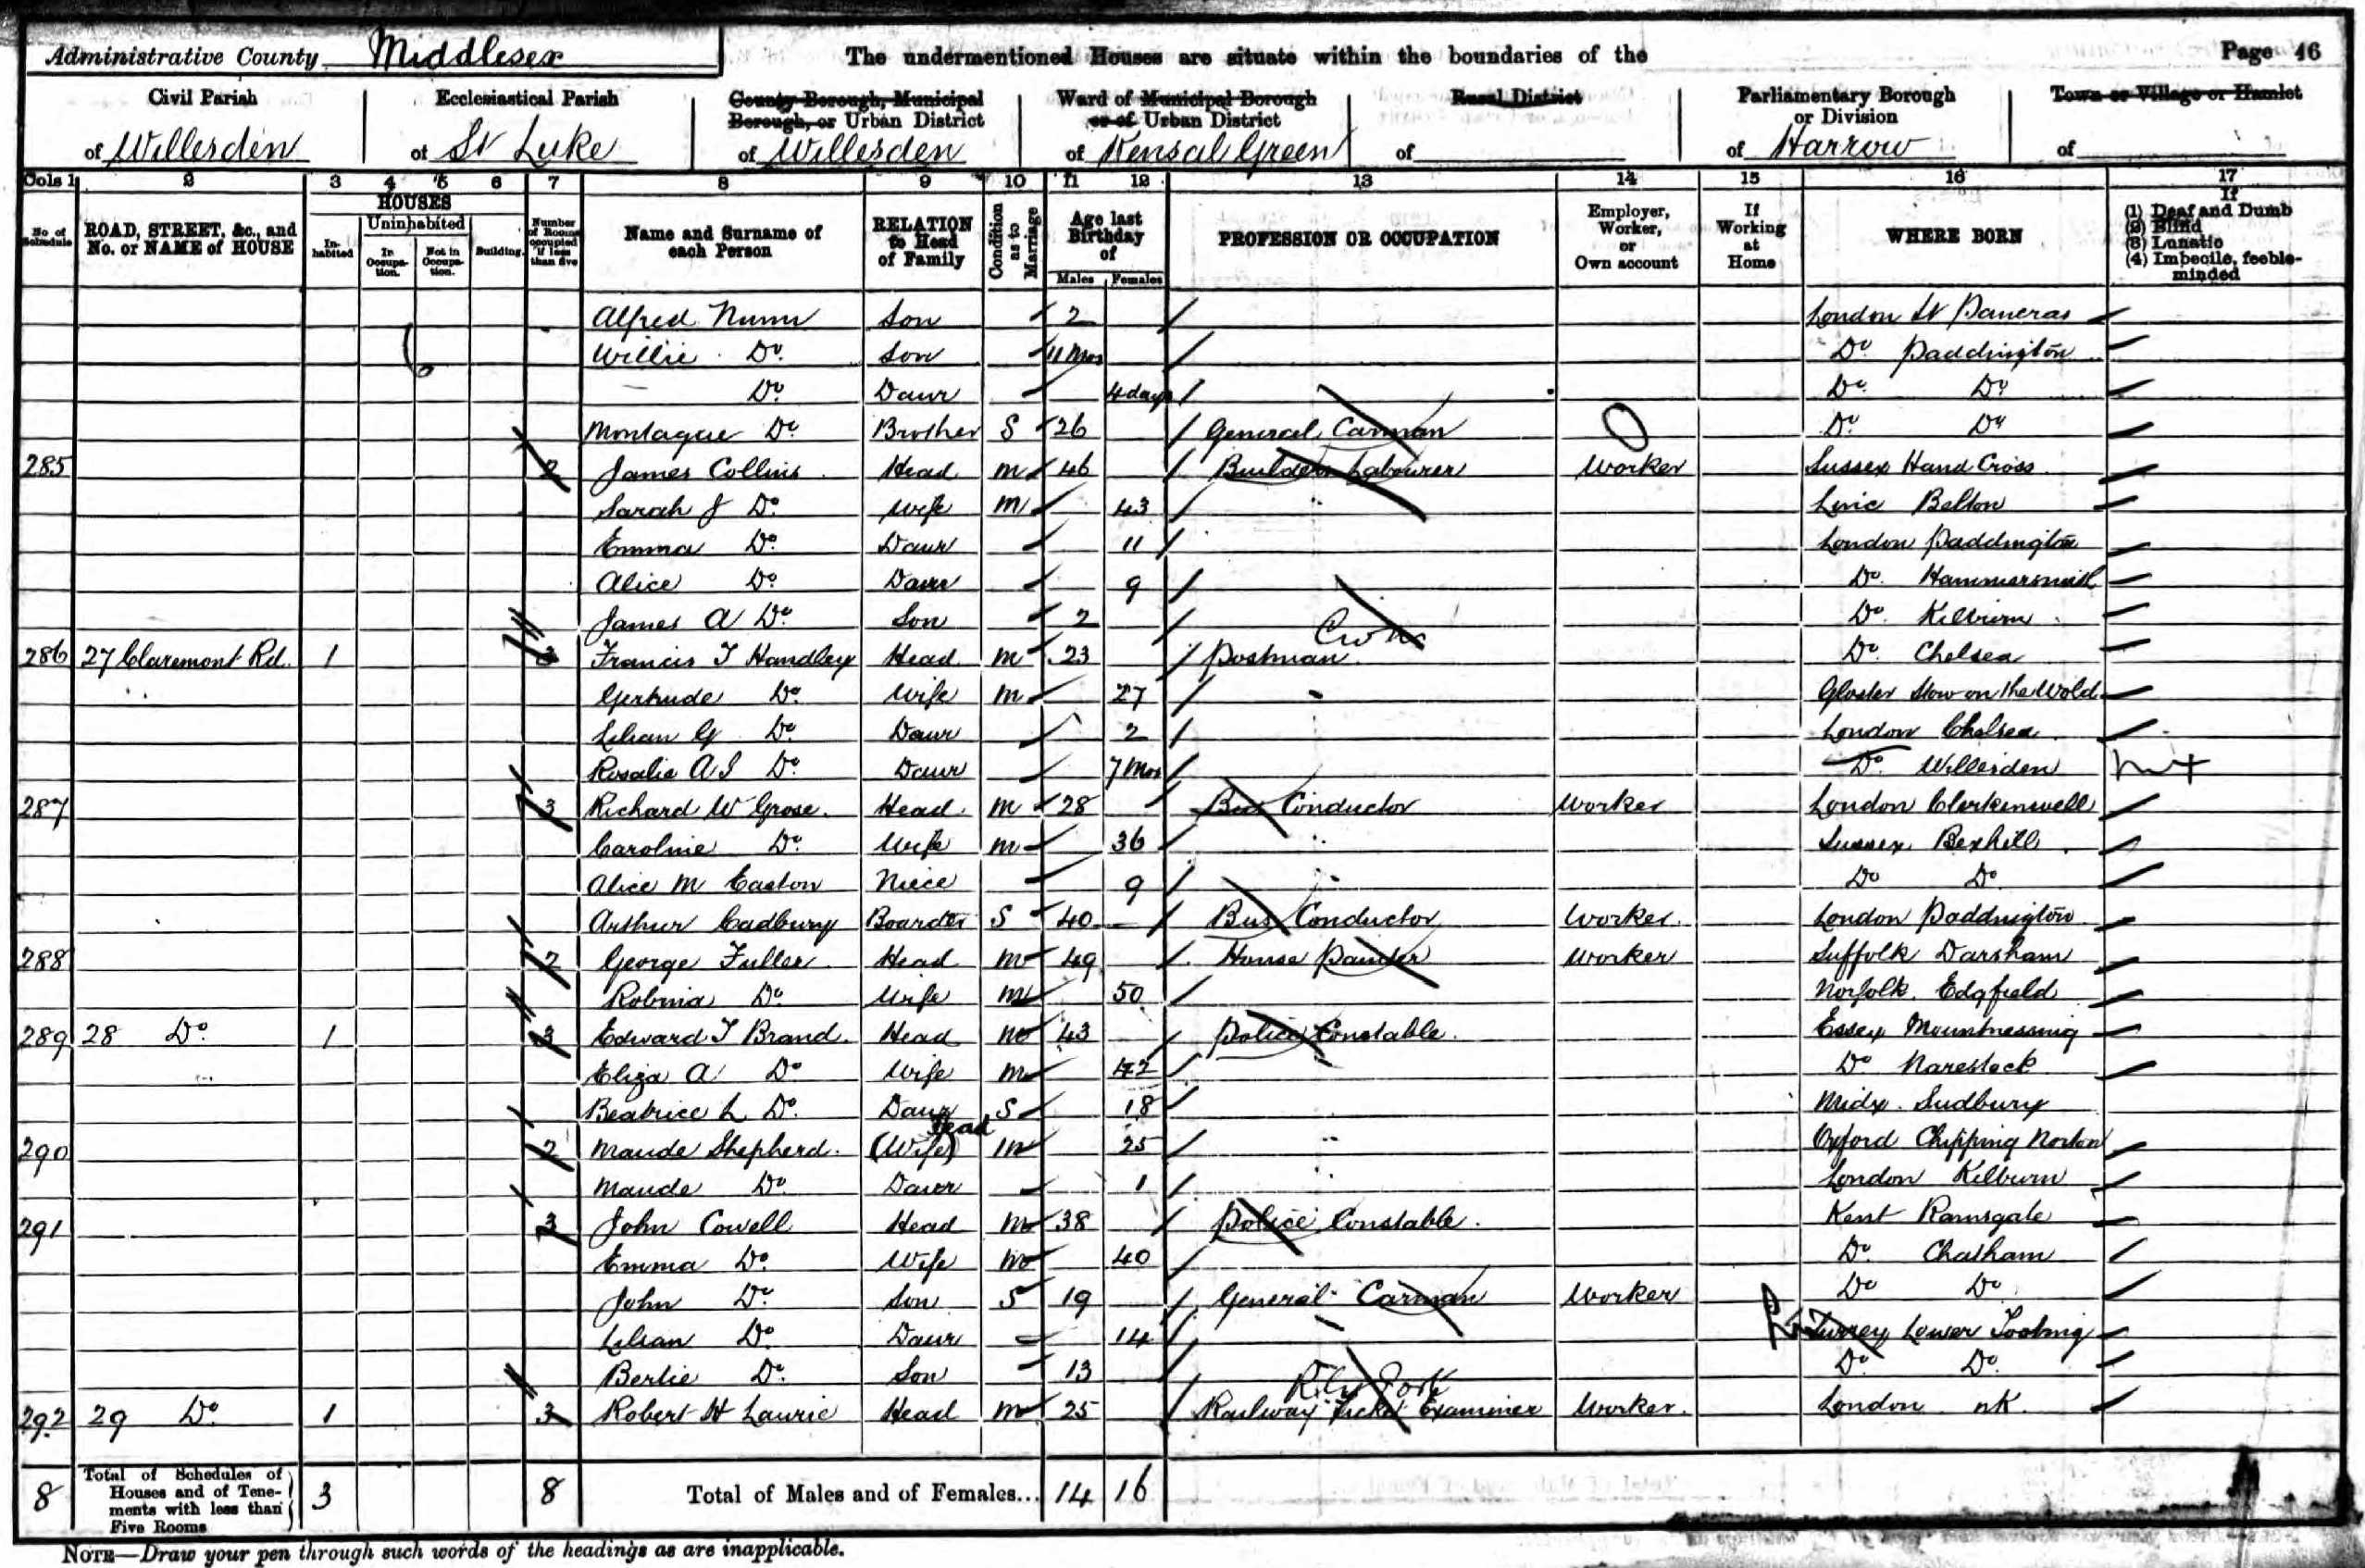 Administrative County Middlesex The undermentioned Houses are situate within the boundaries of the Page 46
Civil Parish Ecclesiastical Parish County Borough, Municipal Borough, or Urban District Ward of Municipal Borough or of Urban District Rural District Parliamentary Borough or Division Town or Village or Hamlet
of Willesden of St Luke of Willesden of Kensal Green of of Harrow of
Cols 1 2 3 4 5 6 7 8 9 10 11 12 13 14 15 16 17
No of Schedule ROAD, STREET, &c., and No. or NAME of HOUSE HOUSES Inhabited Uninhabited In Occupation. Not in Occupation. Building Number of Rooms occupied if less than five Name and Surname of each Person RELATION to Head of Family Condition as to Marriage Age last Birthday of Males Females PROFESSION OR OCCUPATION Employer, Worker, or Own account If Working at Home WHERE BORN If (1) Deaf and Dumb (2) Blind (3) Lunatic (4) Imbecile, feeble-minded
Alfred Nunn Son 2 London St Pancras
Willie Do. Son 11 Mos Do. Paddington
Do. Daur 4 days Do. Do.
Montague Do. Brother S 26 General Carman Do. Do.
285 2 James Collins Head M 46 Builders Labourer Worker Sussex Hand Cross
Sarah J Do. Wife M 43 Linc Belton
Emma Do. Daur 11 London Paddington
Alice Do. Daur 9 Do. Hammersmith
James A Do. Son 2 Do. Kilburn
286 27 Claremont Rd. 1 3 Francis T Handley Head M 23 Postman Do. Chelsea
Gertrude Do. Wife M 27 Gloster Stow on the Wold
Lilian G Do. Daur 2 London Chelsea
Rosalie A I Do. Daur 7 Mos Do. Willesden
287 3 Richard W Grose. Head M 28 Bus Conductor Worker London Clerkenwell
Caroline Do. Wife M 36 Sussex Bexhill
Alice M Easton Niece 9 Do Do.
Arthur Cadbury Boarder S 40 Bus Conductor Worker London Paddington
288 2 George Fuller Head M 49 House Painter Worker Suffolk Darsham
Robina Do. Wife M 50 Norfolk Edgfield
289 28 Do. 1 3 Edward T Brand. Head M 43 Police Constable. Essex Mountnessing
Eliza A Do. Wife M 42 Do Narestock
Beatrice L Do. Daur S 18 Midx. Sudbury
Head
290 2 Maude Shepherd. (Wife) M 25 Oxford Chipping Norton
Maude Do. Daur 1 London Kilburn
291 3 John Cowell Head M 38 Police Constable. Kent Ramsgate
Emma Do. Wife M 40 Do. Chatham
John Do. Son S 19 General Carman Worker Do Do
Lilian Do. Daur 14 Surrey Lower Tooting
Bertie Do. Son 13 Do Do.
292 29 Do. 1 3 Robert H Laurie Head M 25 Railway Ticket Examiner Worker. London nK.
8 Total of Schedules of Houses and of Tenements with less than Five Rooms 3 8 Total of Males and of Females... 14 16
NOTE—Draw your pen through such words of the headings as are inapplicable.